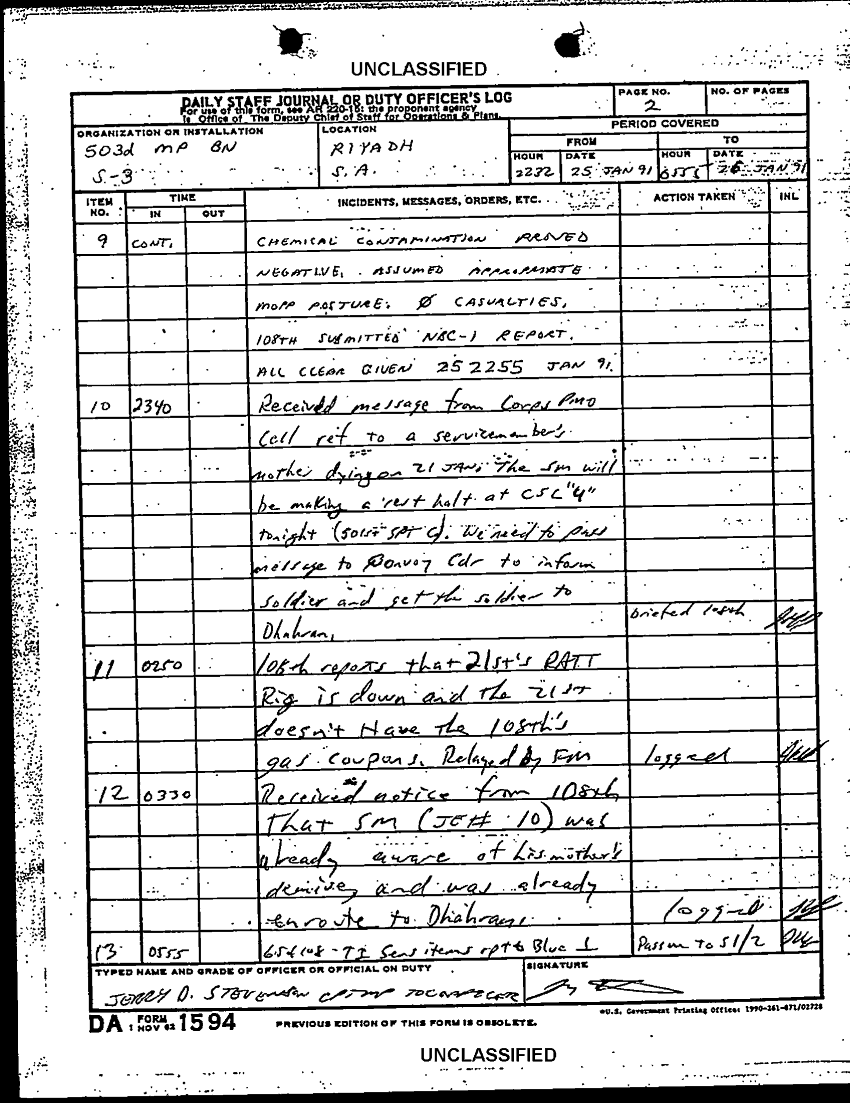 UNCLASSIFIED
DAILY STAFF JOURNAL OR DUTY OFFICER'S LOG
For use of this form, see AR 220-15; the proponent agency
is Office of The Deputy Chief of Staff for Operations & Plans.
PAGE NO.
2
NO. OF PAGES
ORGANIZATION OR INSTALLATION
503d MP BN
S-3
LOCATION
RIYADH
S.A.
PERIOD COVERED
FROM
TO
HOUR DATE HOUR DATE
2232 25 JAN 91 0555 26 JAN 91
ITEM NO. TIME INCIDENTS, MESSAGES, ORDERS, ETC. ACTION TAKEN INL
IN OUT
9 CONT. CHEMICAL CONTAMINATION PROVED
NEGATIVE, ASSUMED APPROPRIATE
MOPP POSTURE. Ø CASUALTIES,
108TH SUBMITTED NBC-1 REPORT.
ALL CLEAR GIVEN 252255 JAN 91.
10 2340 Received message from Corps PMO
Cell ref to a servicemember's
mother dying on 21 JAN. The SM will
be making a rest halt at CSC "4"
tonight (501st SPT G). We need to pass
message to Convoy Cdr to inform
soldier and get the soldier to
Dhahran, briefed 108th
11 0250 108th reports that 21st's RATT
Rig is down and the 21st
doesn't Have the 108th's
gas coupons. Relayed by FM logged
12 0330 Received notice from 108th
That SM (JE# 10) was
already aware of his mother's
demise, and was already
enroute to Dhahran. logged
13 0555 Sens items rpt Blue 1 Pass on To S1/2
TYPED NAME AND GRADE OF OFFICER OR OFFICIAL ON DUTY
SIGNATURE
JERRY D. STEVENSON CPT MP TOC OFFICER
DA FORM 1 NOV 62 1594
PREVIOUS EDITION OF THIS FORM IS OBSOLETE.
U.S. Government Printing Office: 1990-261-871/02728
UNCLASSIFIED